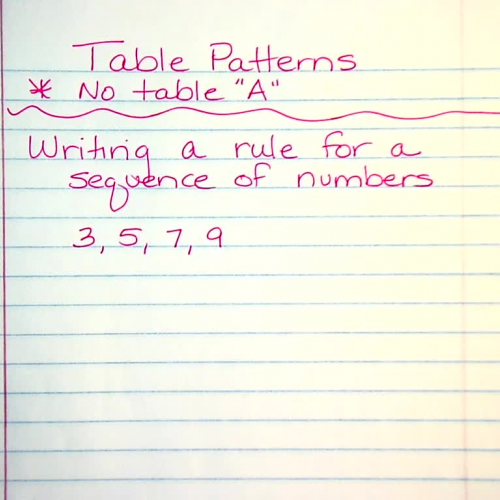 Table Patterns
* No table "A"
Writing a rule for a
sequence of numbers
3, 5, 7, 9